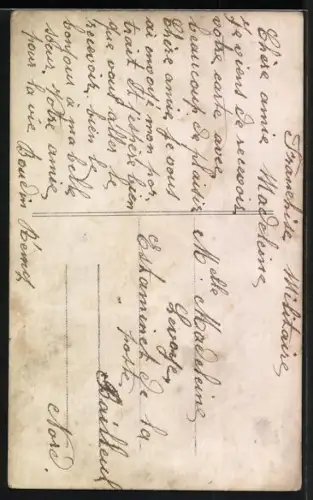 Franchise Militaire
Chère amie Madeleine
Je viens de recevoir
votre carte avec
beaucoup de plaisir
Chère amie, je vous
ai envoyé mon por
trait Et j'espère bien
que vous allez le
recevoir bien le
bonjour à ma belle
sœur. Votre amie
pour la vie Boudin Rémy
Melle Madeleine
Lavoye,
Estaminet de la
poste,
Bailleul
Nord.